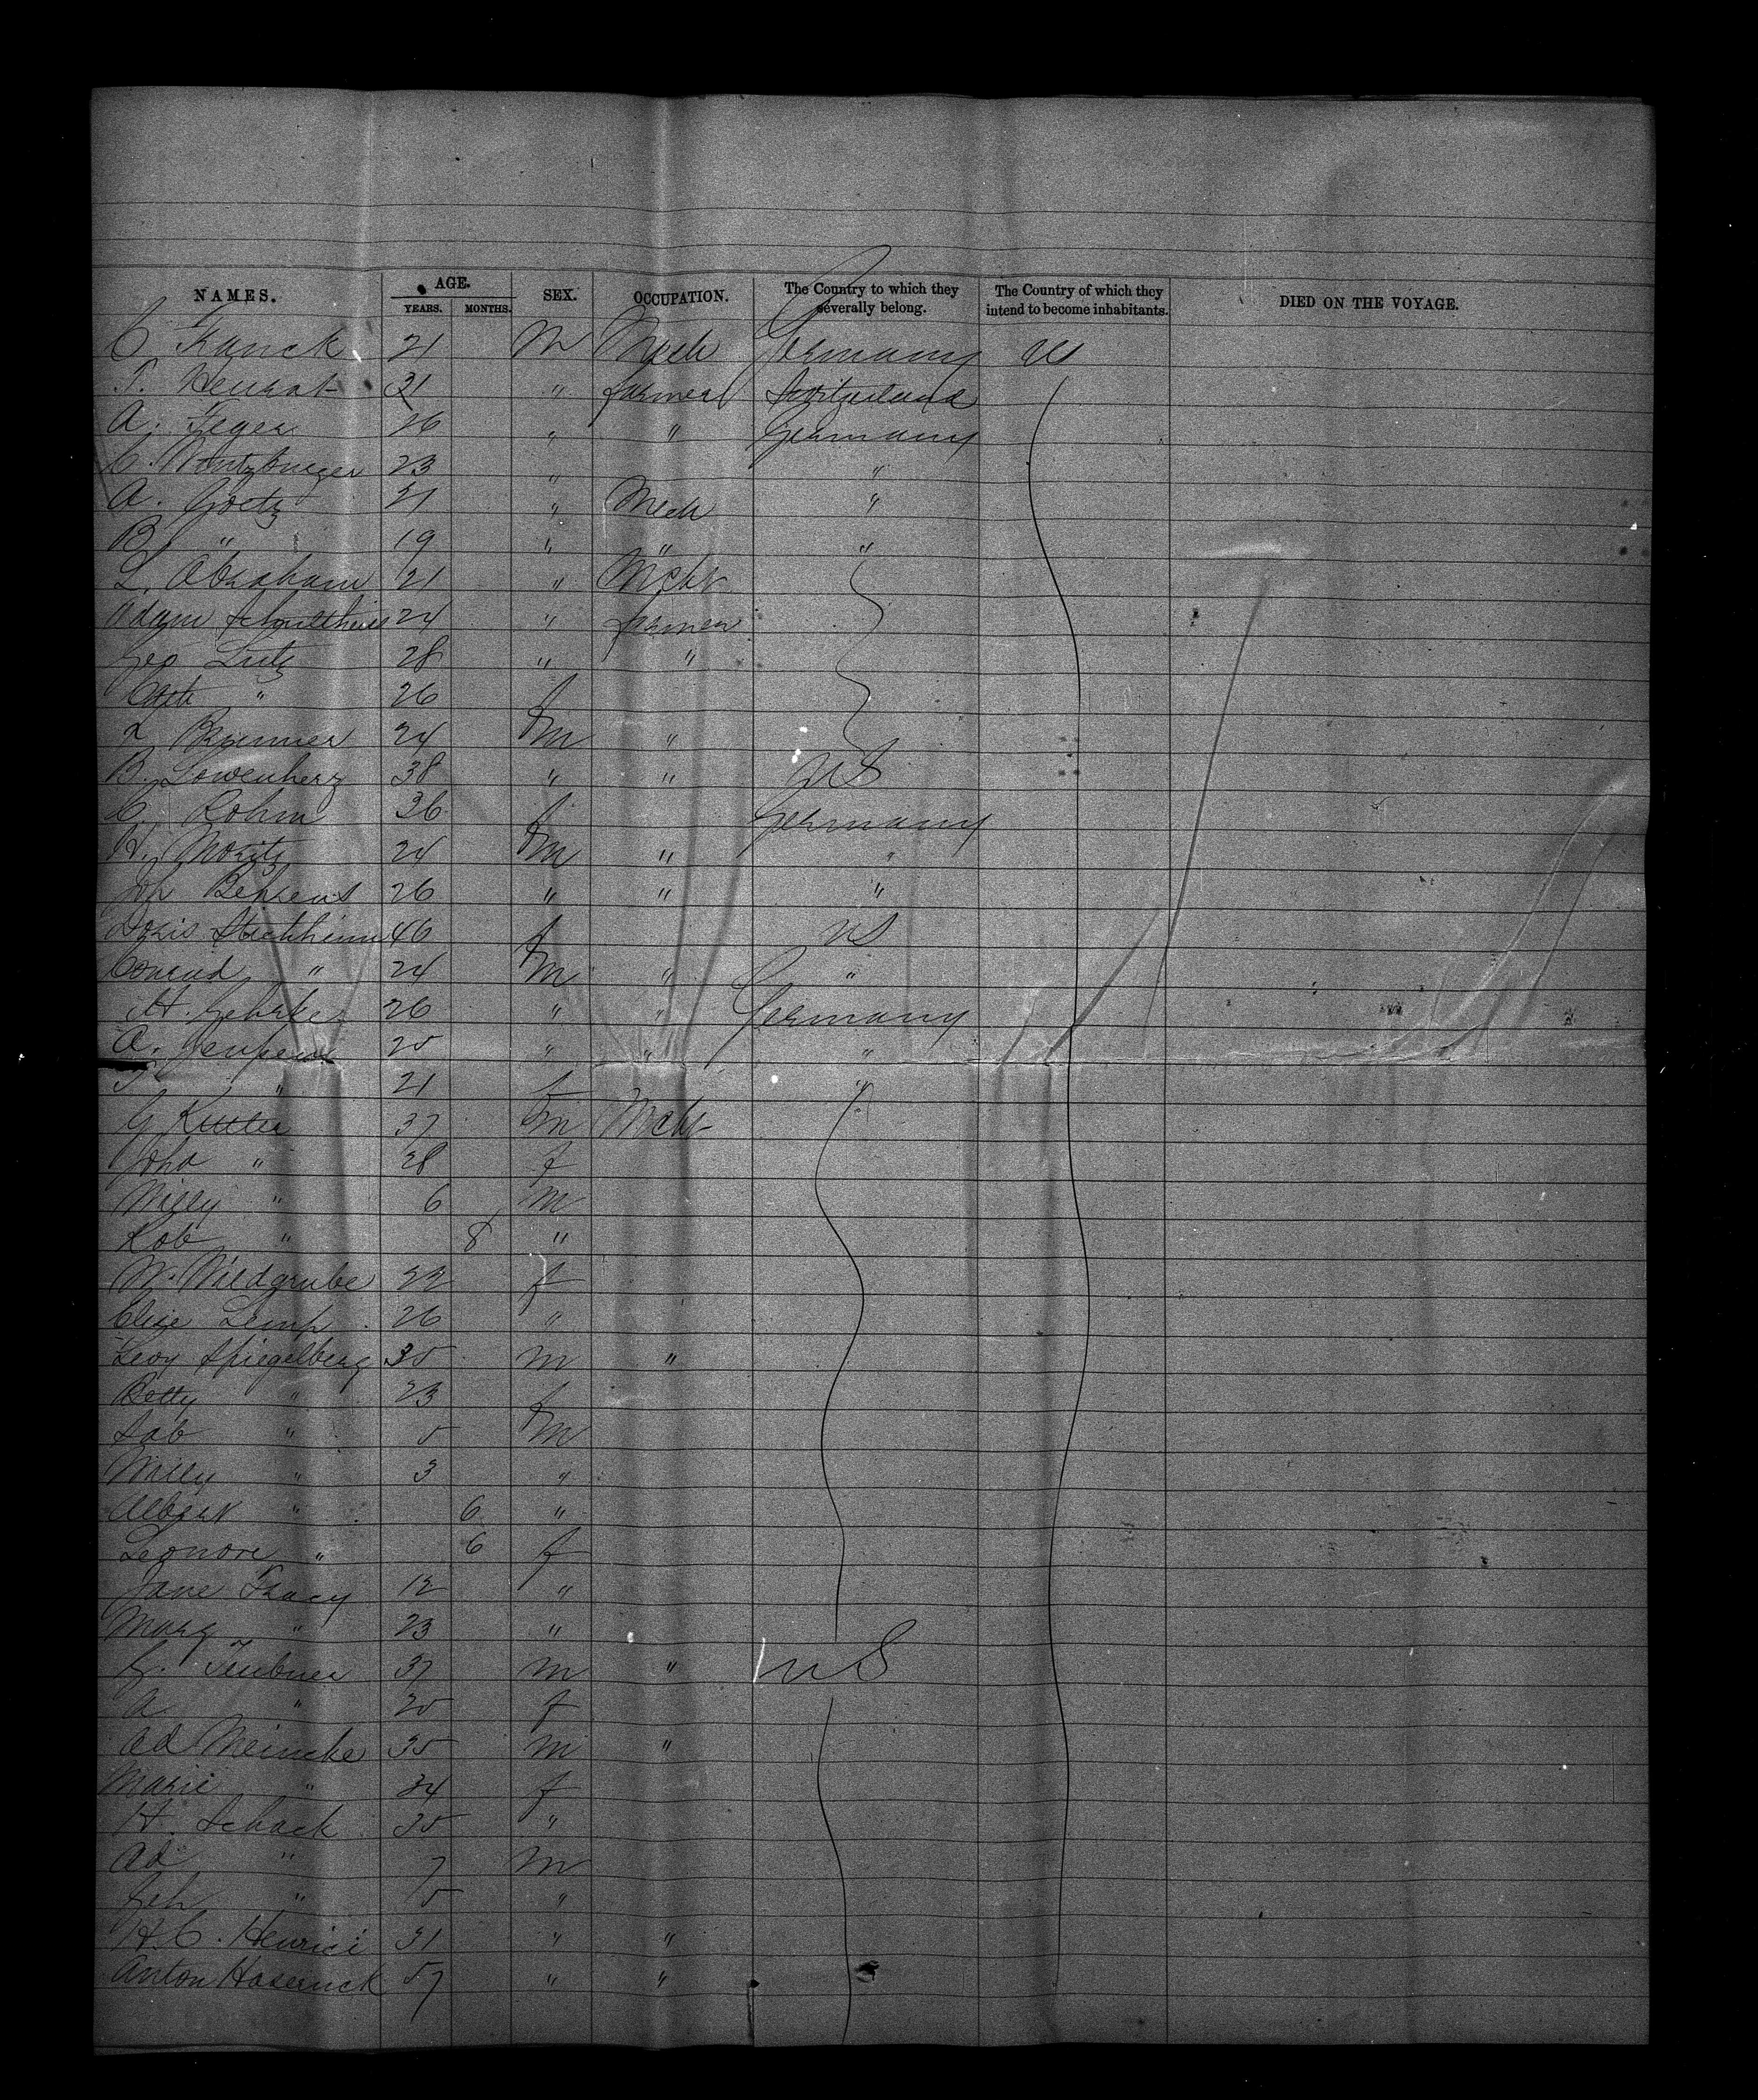 NAMES. AGE. YEARS. MONTHS. SEX. OCCUPATION. The Country to which they severally belong. The Country of which they intend to become inhabitants. DIED ON THE VOYAGE.
C Franck 21 M Mech Germany US
31 " farmer Switzerland
A. 26 " " Germany
C. 23 " "
A. Goetz 21 " Mech "
B " 19 " " "
L. Abraham 21 " Mcht
Adam Schultheiss 24 " farmer
Geo Lutz 28 " "
Cath " 26 f
L Brunner 24 m "
B. Lowenherz 38 " " US
C. Rohm 36 f Germany
H. Moritz 24 m " "
Joh Behrens 26 " " "
Doris 46 f US
Conrad " 24 m " "
H. Gehrke 26 " " Germany
A. 25 " " "
" 21 f "
G 37 m Mcht
" 28 f
" 6 m
Rob " 8 "
W. Wildgrube 22 f
Elise Lemp 26 "
Levy Spiegelberg 35 m "
Betty " 23 f
" 5 m
Willy " 3 "
Albert " 6 "
Leonore " 6 f
Jane Tracy 12 "
Mary " 23 "
G. Teubner 37 m " US
A " 25 f
Ad Meincke 35 m "
Marie " 24 f
H. Schack 35 "
Ad " 7 m
" 5 "
H. C. Henrici 31 " "
Anton 57 " "